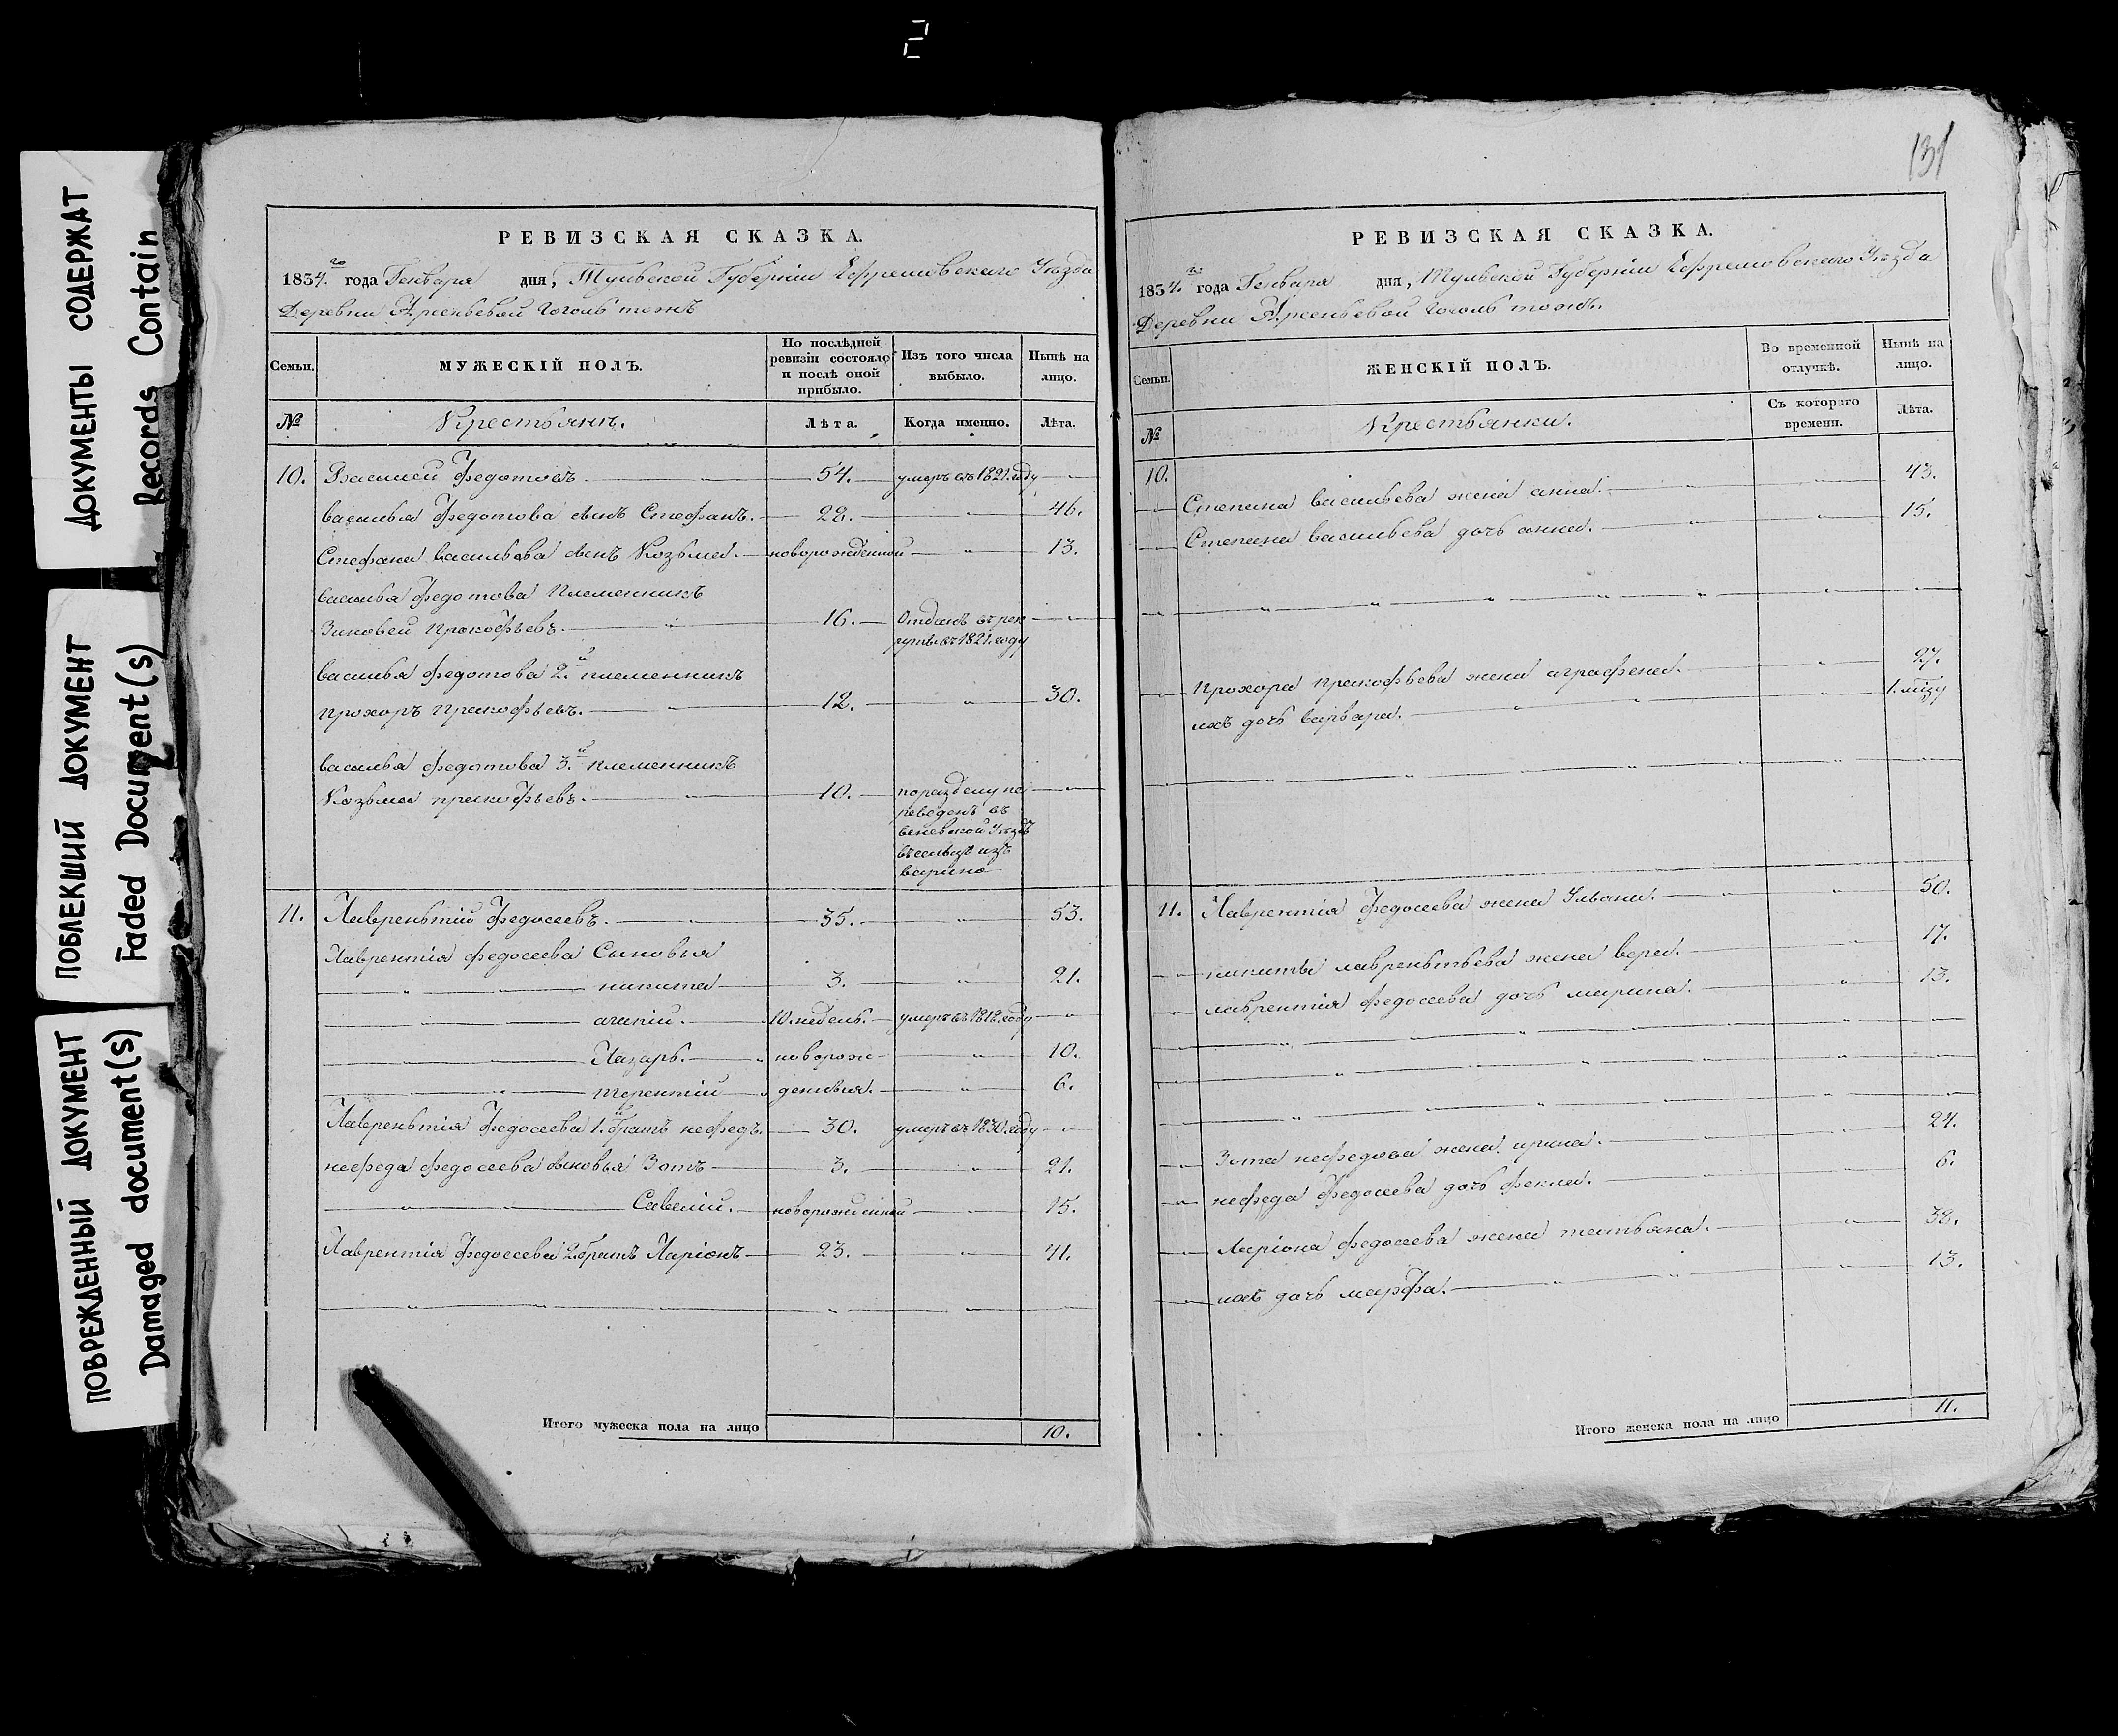 2
ДОКУМЕНТЫ СОДЕРЖАТ
Records Contain
ПОБЛЕКШИЙ ДОКУМЕНТ
Faded Document(s)
ПОВРЕЖДЕННЫЙ ДОКУМЕНТ
Damaged document(s)
РЕВИЗСКАЯ СКАЗКА.
1834.го года Генваря дня, Тульской Губерніи Ефремовскаго Уѣзда
Деревни Арсеньевой Гоголь тожъ
Семьи. МУЖЕСКІЙ ПОЛЪ. По послѣдней ревизіи состояло и послѣ оной прибыло. Изъ того числа выбыло. Нынѣ на лицо.
№ Крестьянъ. Лѣта. Когда именно. Лѣта.
10. Василей Федотовъ. 54. умеръ въ 1821. году
Василья Федотова сынъ Стефанъ. 28. 46.
Стефана Васильева сынъ Козьма. новорожденной 13.
Василья Федотова Племенникъ
Зиновей Прокофьевъ. 16. Отданъ въ рек
руты въ 1821. году
Василья Федотова 2.й племенникъ
Прохоръ Пракофьевъ. 12. 30.
Василья Федотова 3.й племенникъ
Козьма пракофьевъ. 10. по разделу пе
реведенъ въ
веневской Уѣздъ
11. Лавреньтій Федосеевъ. 35. 53.
Лаврентія федосеева Сыновья
никита 3. 21.
агапій. 10. недель. умеръ въ 1818. году
Лазарь. новорож 10.
терентій денныя. 6.
Лавреньтія Федосеева 1.й братъ нефедъ. 30. умеръ въ 1830. году
нефеда федосеева сыновья Зотъ 3. 21.
Савелій. новорожденной 15.
Лаврентія Федосеева 2. братъ Ларіонъ 23. 41.
Итого мужеска пола на лицо 10.
131
РЕВИЗСКАЯ СКАЗКА.
1834.го года Генваря дня, Тульской Губерніи Ефремовскаго Уѣзда
Деревни Арсеньевой Гоголь тожъ.
Семьи. ЖЕНСКІЙ ПОЛЪ. Во временной отлучкѣ. Нынѣ на лицо.
№ Крестьянки. Съ котораго времени. Лѣта.
10. Степана васильева жена анна. 43.
Степана васильева дочь анна. 15.
Прохора пракофьева жена аграфена. 27.
ихъ дочь варвара. 1. мѣсу
11. Лаврентія Федосеева жена Ульяна. 50.
никиты лавреньтьева жена вера. 17.
лаврентія федосеева дочь марина. 13.
Зота нефедова жена ирина. 24.
нефеда Федосеева дочь фекла. 6.
Ларіона федосеева жена татьяна. 38.
ихъ дочь марфа. 13.
Итого женска пола на лицо 11.